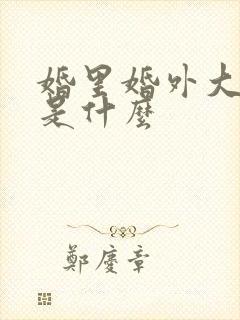 婚里婚外大
是什麼
鄭慶章